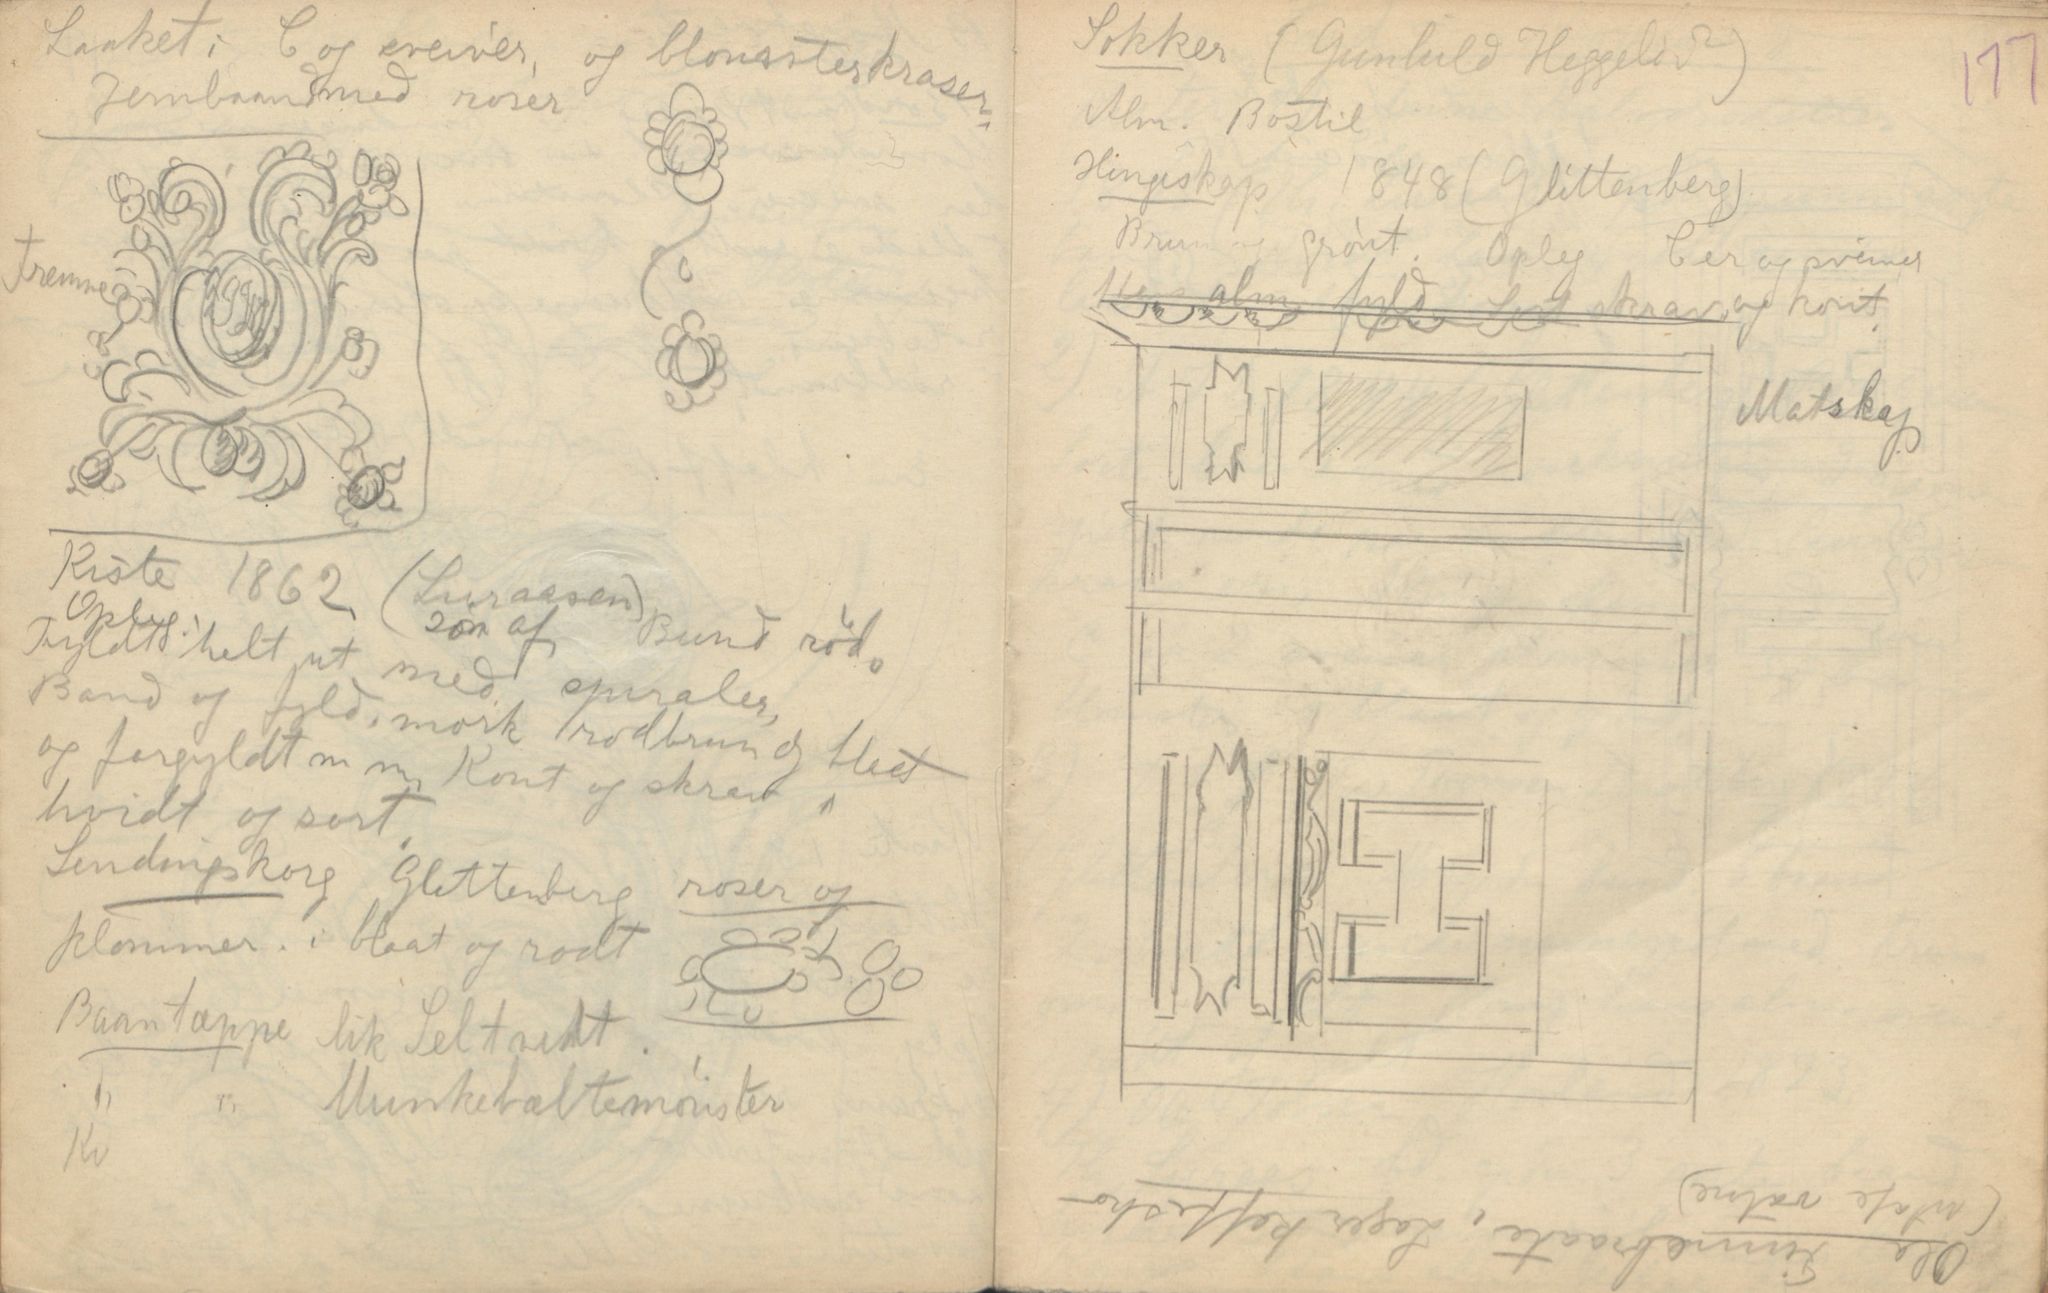 Laaket i C og sveiver, og blomsterkraser
Jernbaand med roser
Fremme
Kiste 1862 (Luraasen)
Opleg i som af Bund rød.
Fyldt helt ut med spiraler,
Band og fyld. mørk rødbrun og blaat
og forgyldt m m, Kont og skrav i
hvidt og sort.
Sendingskorg Glittenberg roser og
plommer. i blaat og rødt
Baantæppe lik Seltveidt.
" " Munkebæltemønster
Kv
Sokker (Gunhuld Heggelid?)
177
Alm. Bøstil
Hingiskap 1848 (Glittenberg)
Brun og grønt. Opleg Cer og sveiver
alm fyld skrav og kont.
Matskap
Ola Tinnebraate, Lager kaffesko
(utafe ratne)